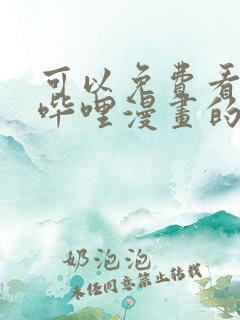 可以免费看
哔哩漫画的
奶泡泡
未经同意禁止转载